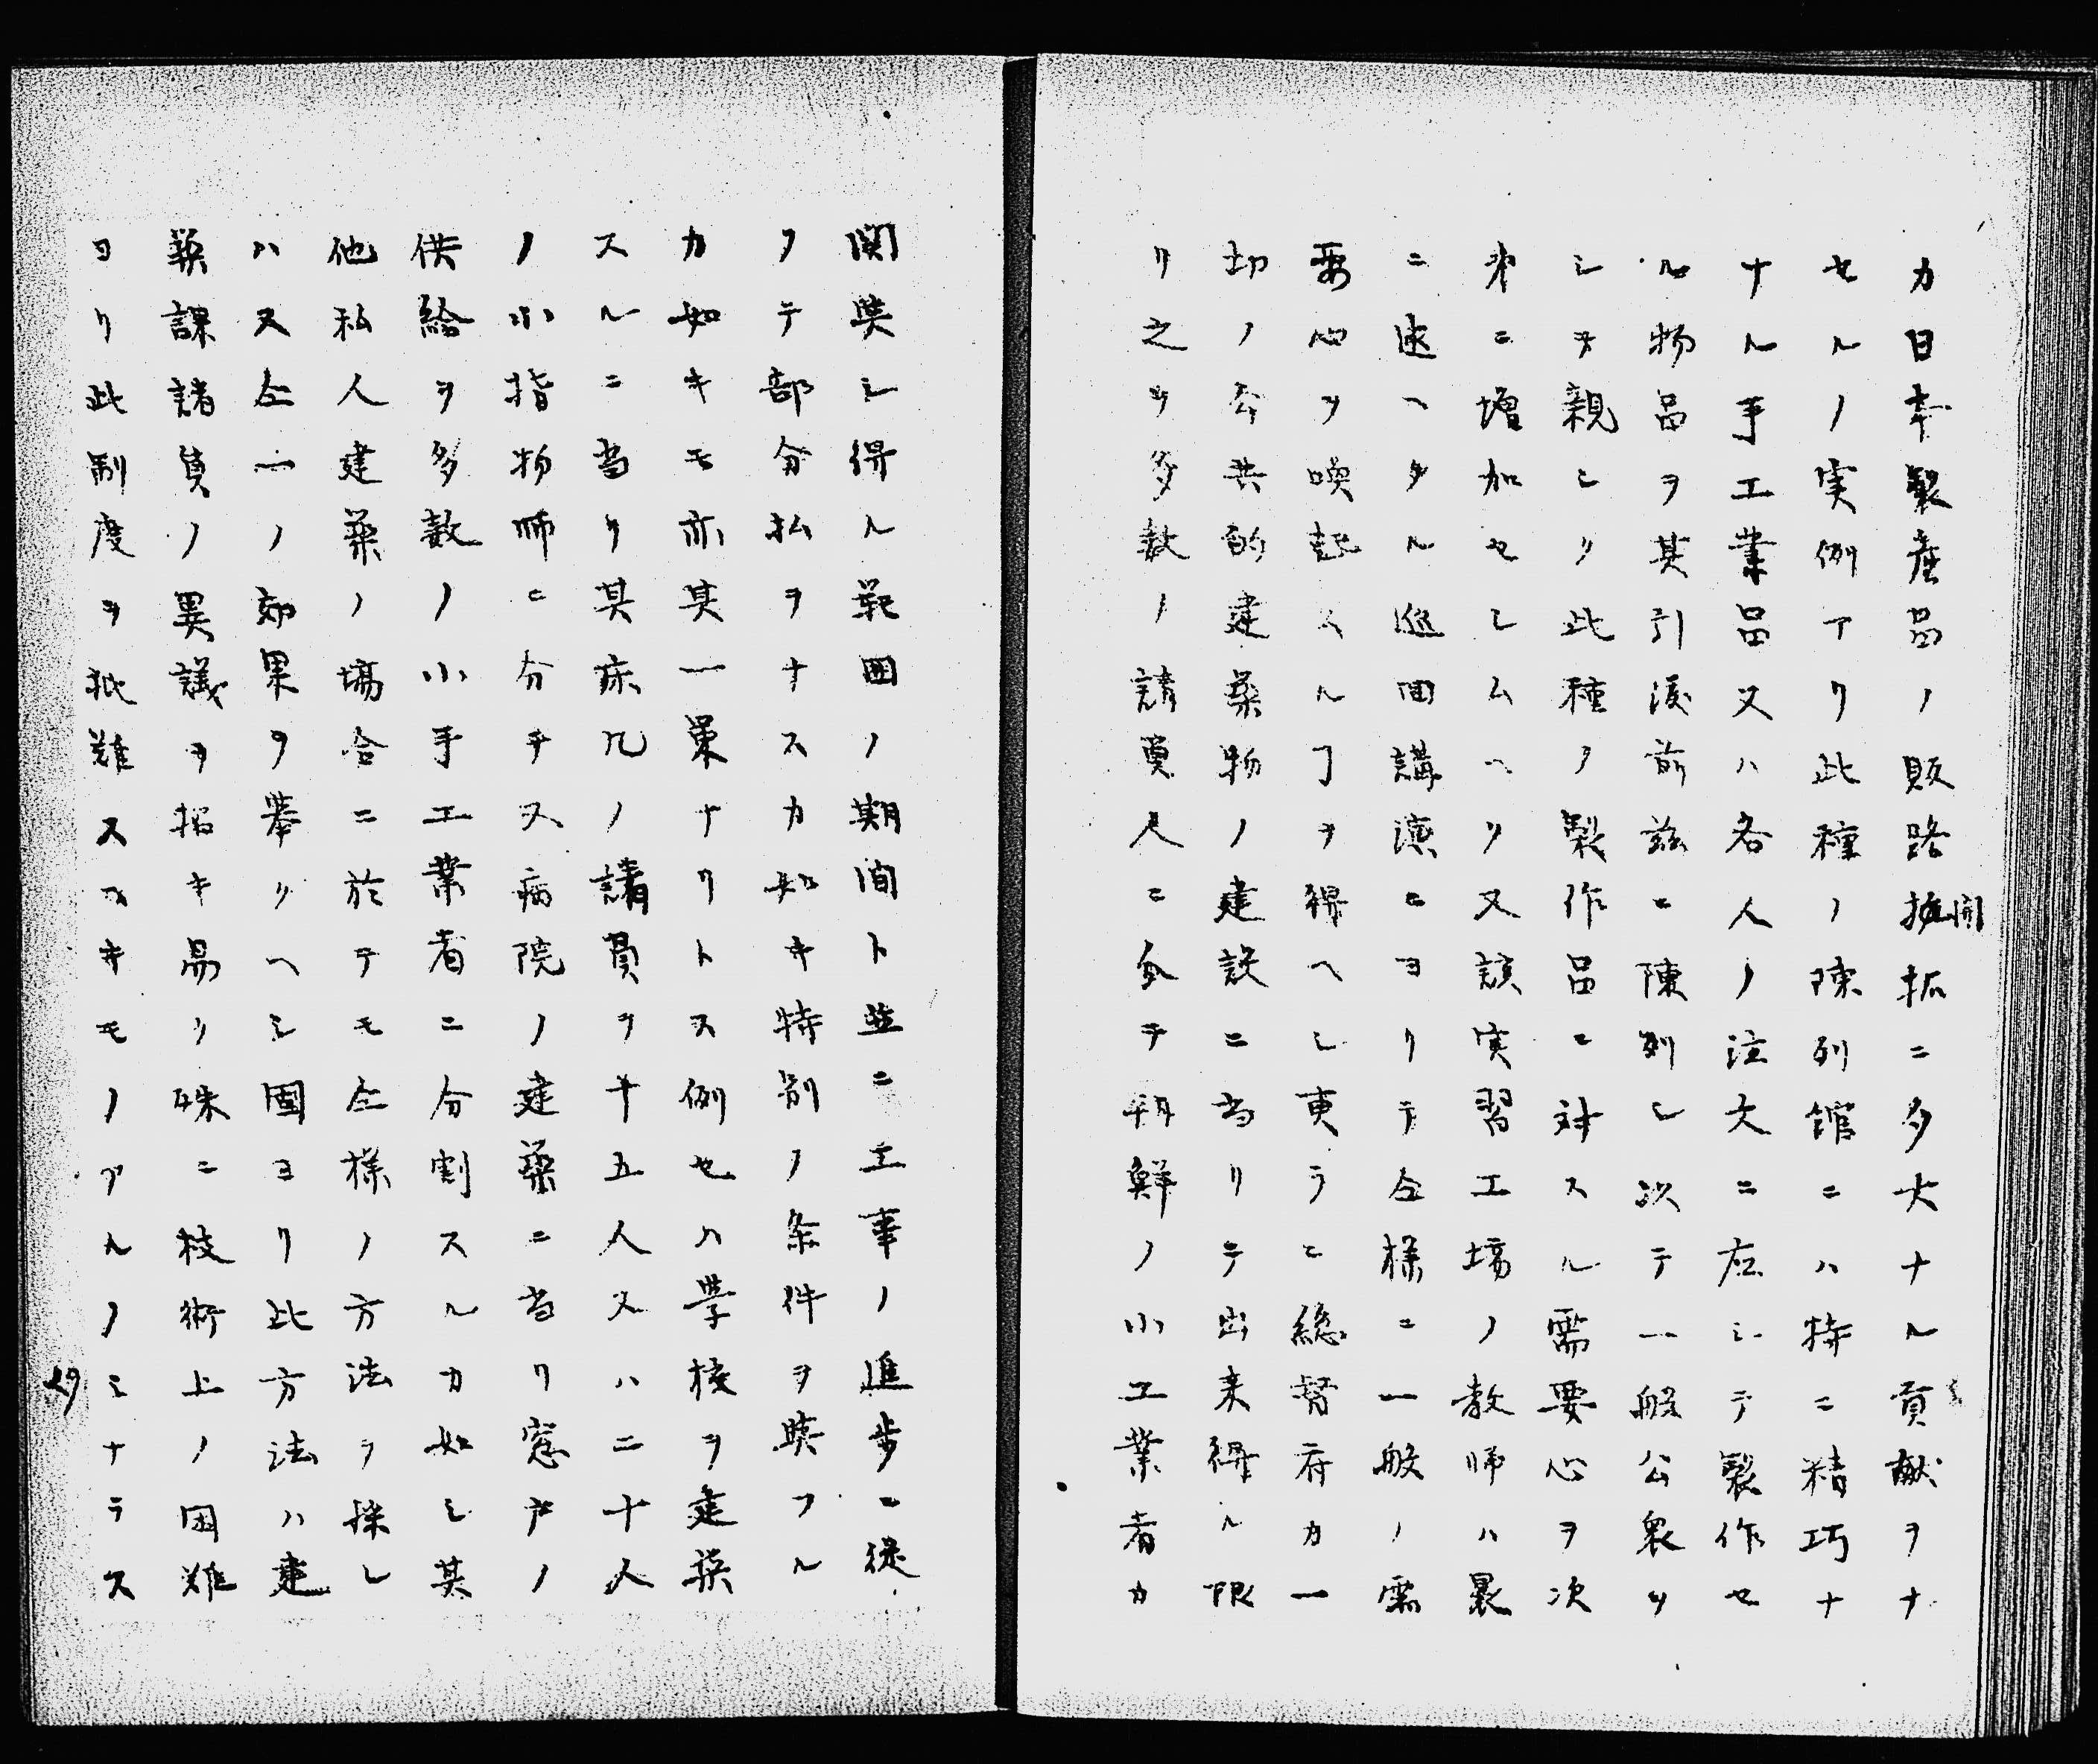 カ日本製産品ノ販路開拓ニ多大ナル貢献ヲナ
セルノ実例アリ此種ノ陳列館ニハ特ニ精巧ナ
ナル手工業品又ハ各人ノ注文ニ応シテ製作セ
ル物品ヲ其引渡前茲ニ陳列シ次テ一般公衆ヲ
シテ親シク此種ノ製作品ニ対スル需要心ヲ次
第ニ増加セシムヘク又該実習工場ノ教師ハ曩
ニ述ヘタル巡回講演ニヨリテ仝様ニ一般ノ需
要心ヲ喚起スルヿヲ得ヘシ更ラニ総督府カ一
切ノ公共的建築物ノ建設ニ当リテ出来得ル限
リ之ヲ多数ノ請負人ニ分チ朝鮮ノ小工業者カ
関与シ得ル範囲ノ期間ト並ニ工事ノ進歩ニ従
フテ部分払ヲナスカ如キ特別ノ条件ヲ与フル
カ如キモ亦其一策ナリトス例セハ学校ヲ建築
スルニ当リ其床几ノ請負ヲ十五人又ハ二十人
ノ小指物師ニ分チ又病院ノ建築ニ当リ窓戸ノ
供給ヲ多数ノ小手工業者ニ分割スルカ如シ其
他私人建築ノ場合ニ於テモ仝様ノ方法ヲ採レ
ハ又仝一ノ効果ヲ挙クヘシ固ヨリ此方法ハ建
築課諸員ノ異議ヲ招キ易ク殊ニ技術上ノ困難
ヨリ此制度ヲ批難スヘキモノアルノミナラス
29